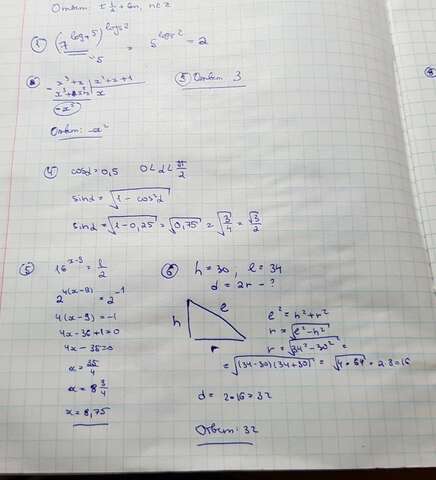 Ответ: ± 1/2 + 6n, n∈Z
① (7^(log₇5))^(log₅2) = 5^(log₅2) = 2
5
x³+x | x²+x+1
x
-x²
Ответ: -x²
⑤ Ответ 3
4 cosα = 0,5 0 < α < π/2
sinα = √(1 - cos²α)
sinα = √(1-0,25) = √0,75 = √(3/4) = √3/2
⑤ 16^(x-9) = 1/2
2^(4(x-9)) = 2^(-1)
4(x-9) = -1
4x-36+1=0
4x-35=0
x = 35/4
x = 8 3/4
x = 8,75
⑥ h = 30, l = 34
d = 2r - ?
h l r
l² = h² + r²
r = √(l² - h²)
r = √(34² - 30²) =
= √((34-30)(34+30)) = √(4·64) = 2·8=16
d = 2·16=32
Ответ: 32